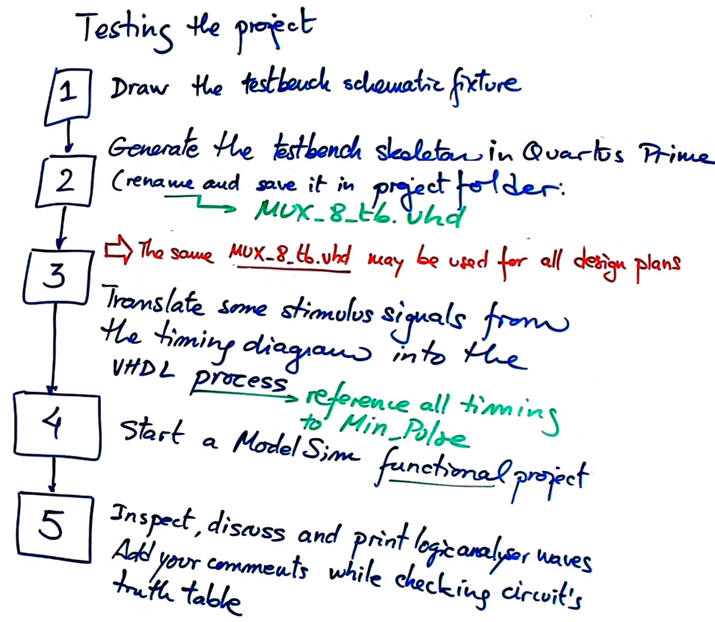 Testing the project
1 Draw the testbench schematic fixture
Generate the testbench skeleton in Quartus Prime
2 (rename and save it in project folder:
MUX_8_tb.vhd
3 ⇒ The same MUX_8_tb.vhd may be used for all design plans
Translate some stimulus signals from
the timing diagram into the
VHDL process
reference all timing
to Min_Pulse
4 Start a ModelSim functional project
5 Inspect, discuss and print logic analyser waves
Add your comments while checking circuit's
truth table